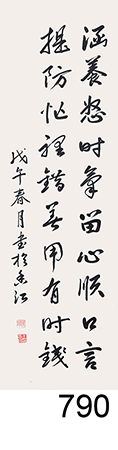 涵養怒时氣留心順口言
提防忙裡錯善用有时錢
戊午春月書於香江
790